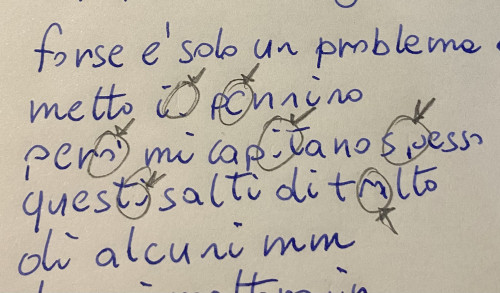 forse e' solo un problema
metto il pennino
però mi capitano spesso
questi salti di tratto
di alcuni mm